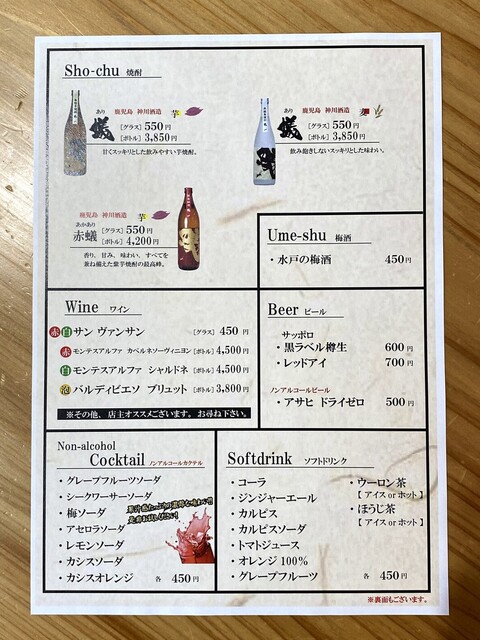 Sho-chu 焼酎
あり 鹿児島 神川酒造 芋
蟻 [グラス] 550円
[ボトル] 3,850円
甘くスッキリとした飲みやすい芋焼酎。
あり 鹿児島 神川酒造 麦
蟻 [グラス] 550円
[ボトル] 3,850円
飲み飽きしないスッキリとした味わい。
鹿児島 神川酒造 芋
あかあり
赤蟻 [グラス] 550円
[ボトル] 4,200円
香り、甘み、味わい、すべてを
兼ね備えた紫芋焼酎の最高峰。
Ume-shu 梅酒
・水戸の梅酒 450円
Wine ワイン
赤 白 サン ヴァンサン [グラス] 450円
赤 モンテスアルファ カベルネソーヴィニヨン [ボトル] 4,500円
白 モンテスアルファ シャルドネ [ボトル] 4,500円
泡 バルディビエソ ブリュット [ボトル] 3,800円
※その他、店主オススメございます。お尋ね下さい。
Beer ビール
サッポロ
・黒ラベル樽生 600円
・レッドアイ 700円
ノンアルコールビール
・アサヒ ドライゼロ 500円
Non-alcohol
Cocktail ノンアルコールカクテル
・グレープフルーツソーダ
・シークワーサーソーダ
・梅ソーダ
・アセロラソーダ
・レモンソーダ
・カシスソーダ
・カシスオレンジ 各 450円
果汁感たっぷりの濃厚な味わい!!
是非お試しください!
Softdrink ソフトドリンク
・コーラ
・ジンジャーエール
・カルピス
・カルピスソーダ
・トマトジュース
・オレンジ100%
・グレープフルーツ
・ウーロン茶
【アイス or ホット】
・ほうじ茶
【アイス or ホット】
各 450円
※裏面もございます。